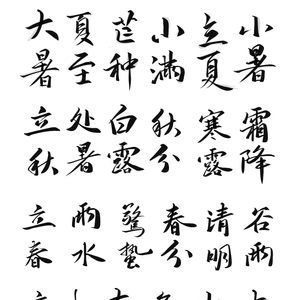 大夏芒小立小
暑至种滿夏暑
立处白秋寒霜
秋暑露分露降
立雨驚春清谷
春水蟄分明雨